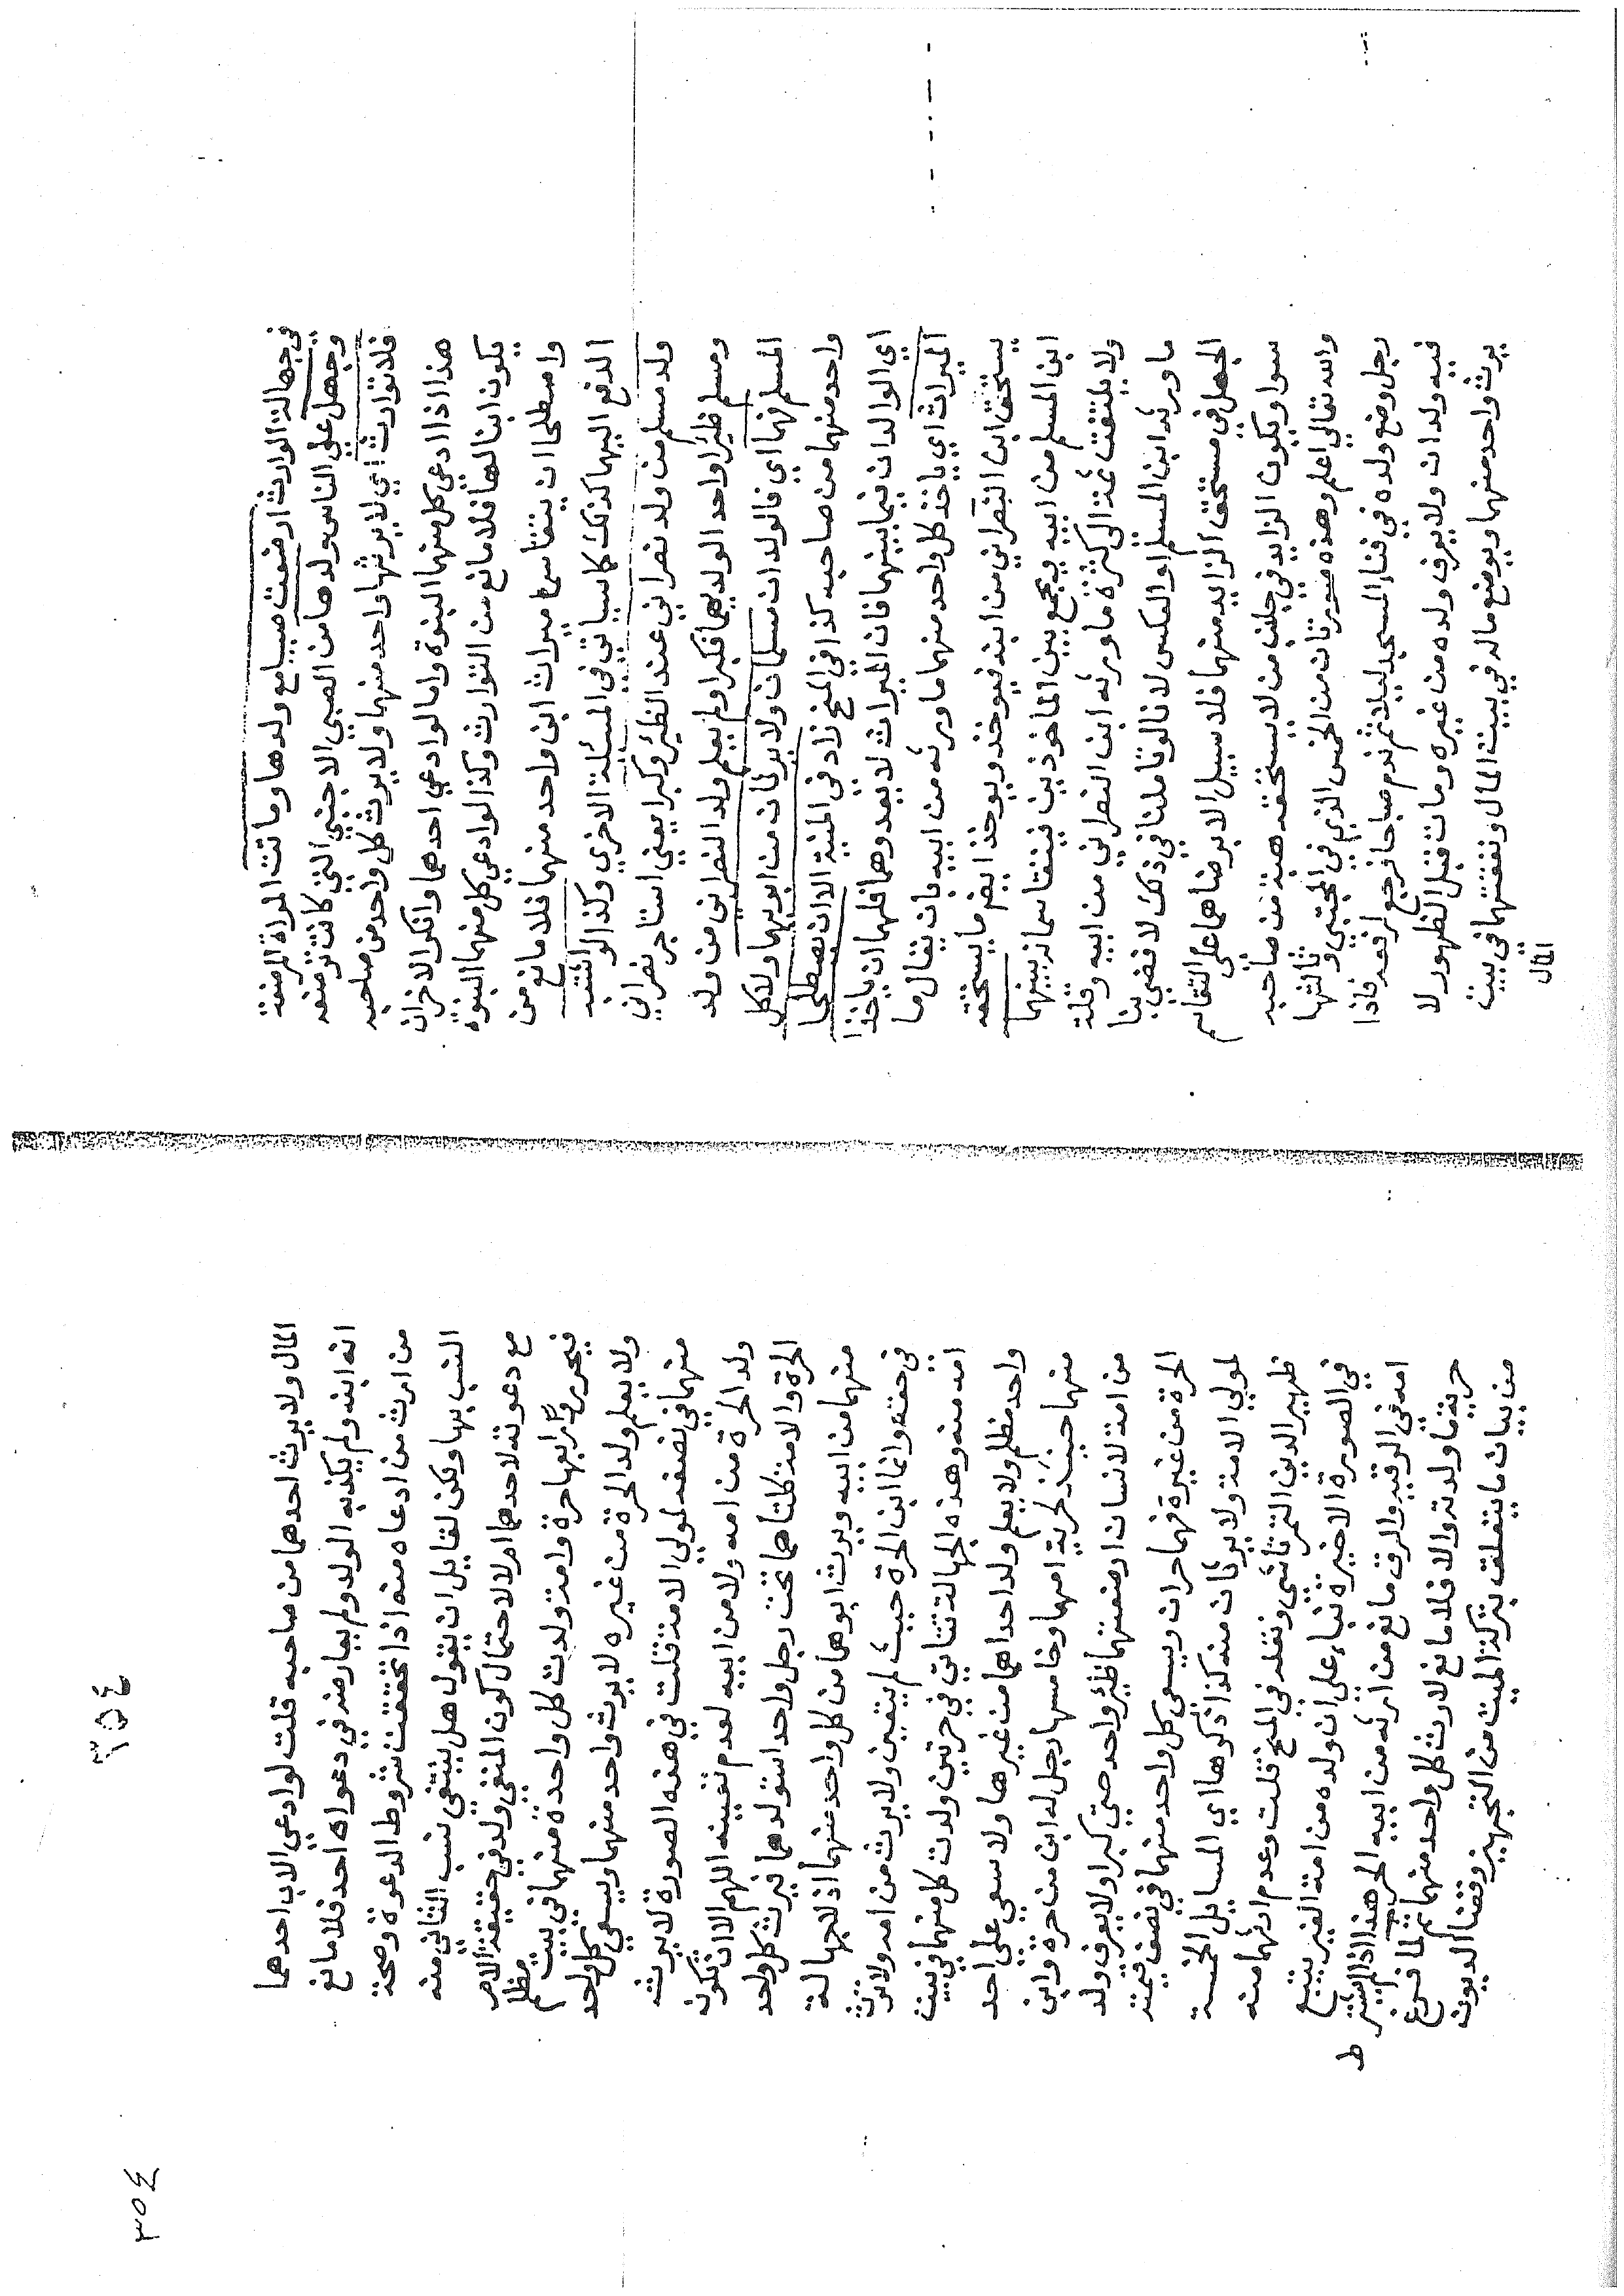 في جهالة الوارث ارضعت صبيا مع ولدها وماتت المراة المرضعة
وجهل علي الناس ولدها من الصبي الاجنبي الذي كانت ترضعه
فلا توارث اي لا يرثها واحد منهما ولا يرث كل واحد من صاحبه
هذا اذا ادعي كل منهما البنوة واما لو ادعي احدهما وانكر الاخر ان
يكون ابنا لها فلا مانع من التوارث وكذا لو ادعي كل منهما البنوة
واصطلحا ان يتقاسما ميراث ابن واحد منهما فلا مانع من
الدفع اليهما كذلك كما سياتي في المسئلة الاخري وكذا لو اشتبه
ولد مسلم من ولد نصراني عند الظئر وكبرا يعني استاجر نصراني
ومسلم ظئرا واحدا لولديهما فكبرا ولم يعلم ولد النصراني من ولد
المسلم فهما اي فالولدان مسلمان ولا يرثان من ابويهما ولا كل
واحد منهما من صاحبه كذا في المنح زاد في المنية الا ان يصطلحا
اي الوالدان فيما بينهما فان الميراث لا يعدوهما فلهما ان ياخذا
الميراث اي ياخذ كل واحد منهما ما ورثه من ابيه بان يقال ما
يستحق ابن النصراني من ابنه فيوخذ ويوخذ ايضا ما يستحقه
ابن المسلم من ابيه ويجمع بين الماخوذين فيتقاسمانه بينهما
ولا يلتفت ثمة الي كثرة ما ورثه ابن النصراني من ابيه وقلة
ما ورثه ابن المسلم او العكس لانا لو تاملنا في ذلك لافضي بنا
الجهل في مستحق الزايد منهما فلا سبيل الا برضاهما علي التقاسم
سوا ويكون الزايد في جانب من لا يستحقه هبة من صاحبه
والله تعالي اعلم وهذه صورتان من الخمس الذي في المجتبي وثالثها
رجل وضع ولده في فناء المسجد ليلا ثم ندم صباحا فرجع لرفعه فاذا
فيه ولدان ولا يعرف ولده من غيره ومات قبل الظهور لا
يرث واحد منهما ويوضع ماله في بيت المال ونفقتهما في بيت
المال
المال ولا يرث احدهما من صاحبه قلت لو ادعي الاب احدهما
انه ابنه ولم يكذبه الولد ولم يعارضه في دعواه احد فلا مانع
من ارث من ادعاه منه اذا تحققت شروط الدعوة وصحة
النسب بها ولكن لقايل ان يقول هل ينتفي نسب الثاني منه
مع دعوته لاحدهما ام لا لاحتمال كون المنفي ولده في حقيقة الامر
فيحرر ورابعها حرة وامة ولدت كل واحدة منهما في بيت مظلم
ولا يعلم ولد الحرة من غيره لا يرث واحد منهما ويسعي كل واحد
منهما في نصفه لمولي الامة قلت في هذه الصورة لا يرث
ولد الحرة من امه ولا من ابيه لعدم تعيينه اللهم الا ان تكون
الحرة والامة كلتاهما تحت رجل واحد استولدهما فيرث كل واحد
منهما من ابيه ويرث ابوهما من كل واحد منهما اذ لا جهالة
في حقه وانما ابن الحرة حيث لم يتعين ولا يرث من امه ولا ترث
امه منه وهذه الجهالة تتاتي في حرتين ولدت كل منهما في بيت
واحد مظلم ولا يعلم ولد احداهما من غيرها ولا سعي علي احد
منهما حينئذ لحرية امهما وخامسها رجل له ابن من حرة وابن
من امة لانسان ارضعتهما ظئر واحد حتي كبرا ولا يعرف ولد
الحرة من غيره فهما حران ويسعي كل واحد منهما في نصف قيمته
لمولي الامة ولا يرثان منه كذا ذكرها اي المسايل الخمسة
ظهير الدين التمرتاشي ونقله في المنح قلت وعدم ارثهما منه
في الصورة الاخيرة بناء علي ان ولده من امة الغير يتبع
امه في الرقية والرق مانع من ارثه من ابيه الحر هذا اذا لم يشتر ط
حريته ما ولدته والا فلا مانع لارث كل واحد منهما ثم لما فرغ
من بيان ما يتعلق بتركة الميت من التجهيز وقضا الديون
٣٥٤
٣٥٤